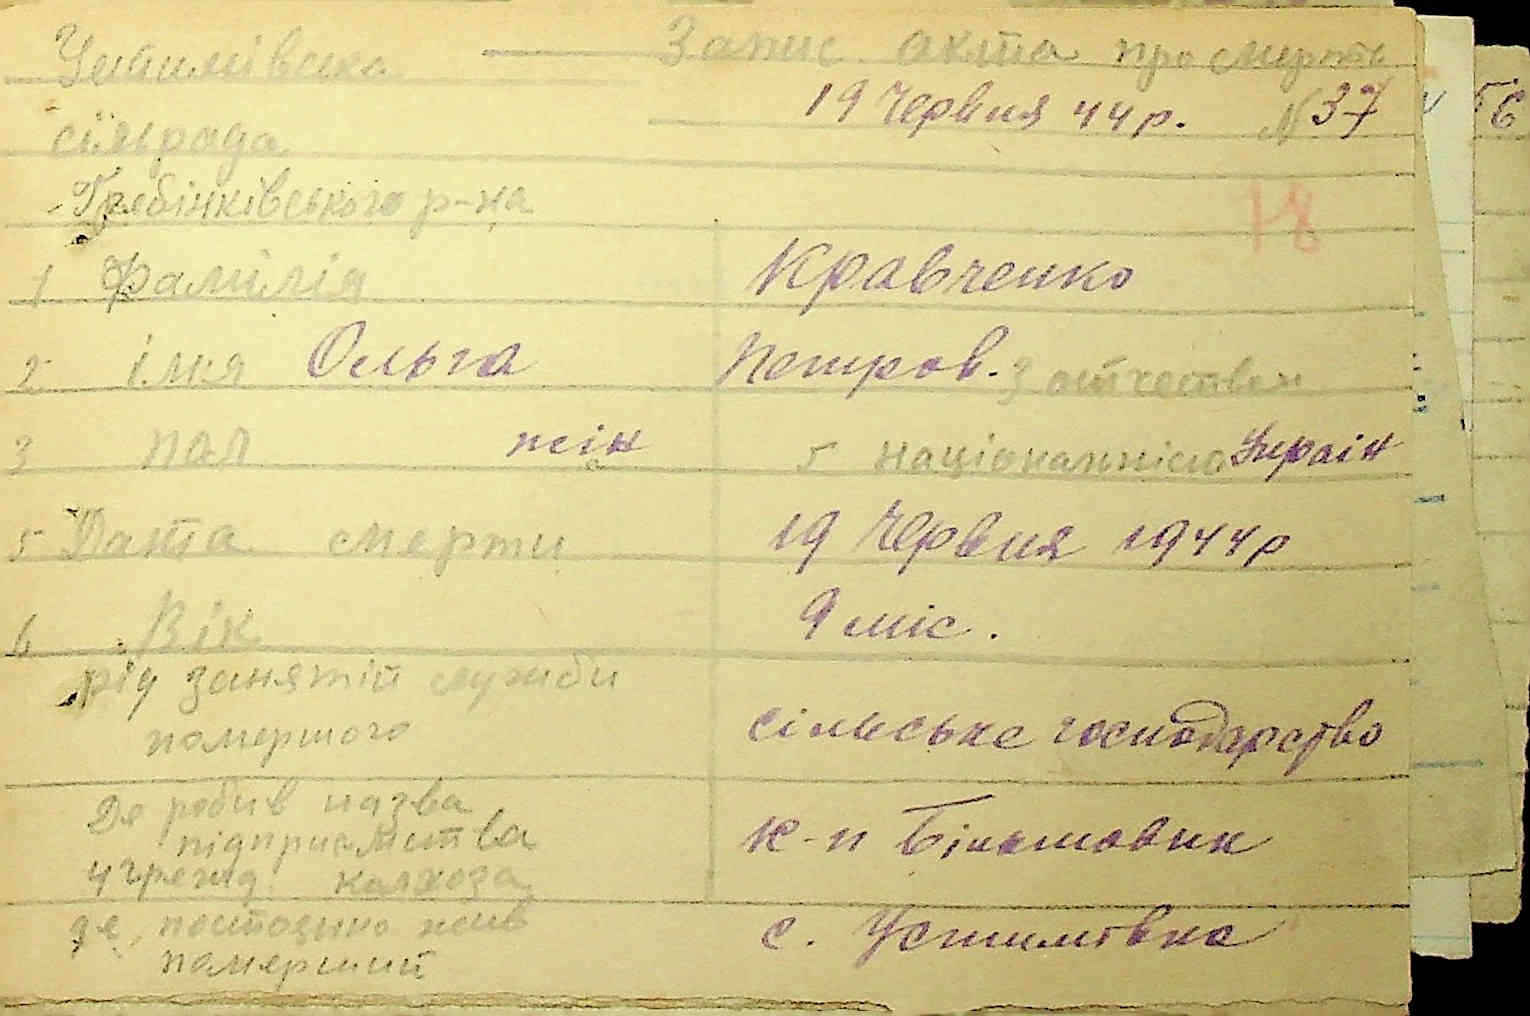 Устимівска
Запис акта про смерть
19 червня 44 р. N 37
сільрада
Гребінківського р-на
78
1 Фамілія Кравченко
2 імя Ольга Петров. з отчеством
3 пол жін 5 національність Украін
5 Дата смерти 19 червня 1944 р
6 Вік 9 міс.
рід занятій служби
помершого сільське господарство
Де робив назва
підприємства
учрежд. колхоза к-п Більшовик
де постоянно жив
померший с. Устимівка
56